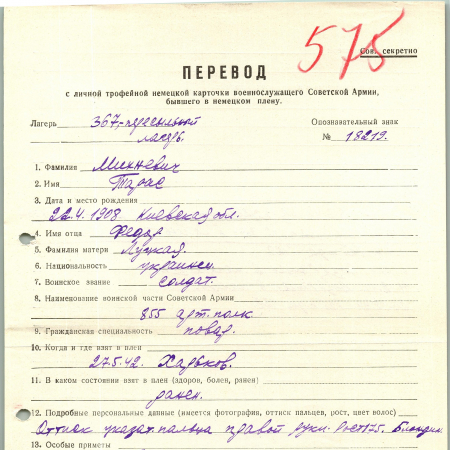 575
Сов. секретно
ПЕРЕВОД
с личной трофейной немецкой карточки военнослужащего Советской Армии,
бывшего в немецком плену.
Лагерь 367,-пересыльный Опознавательный знак
лагерь. № 18219.
1. Фамилия Михневич
2. Имя Тарас
3. Дата и место рождения
22.4.1908 Киевская обл.
4. Имя отца Федор
5. Фамилия матери Луцкая.
6. Национальность украинец.
7. Воинское звание солдат.
8. Наименование воинской части Советской Армии
855 арт. полк
9. Гражданская специальность повар.
10. Когда и где взят в плен
27.5.42. Харьков.
11. В каком состоянии взят в плен (здоров, болен, ранен)
ранен.
12. Подробные персональные данные (имеется фотография, оттиск пальцев, рост, цвет волос)
Оттиск указат. пальца правой руки. Рост 175. Блондин
13. Особые приметы